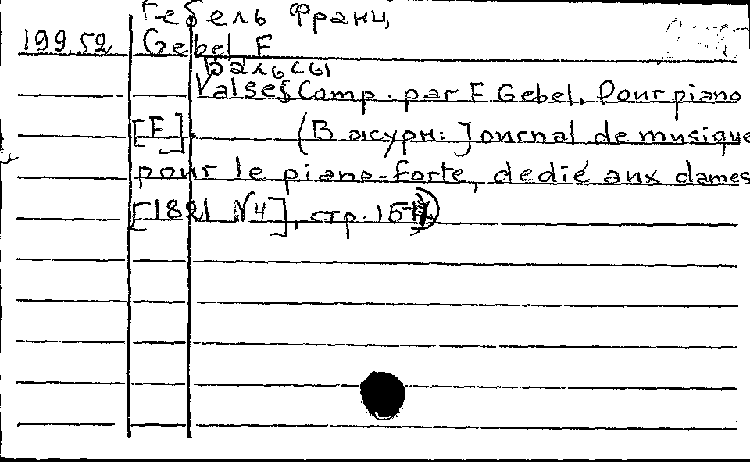 Гебель Франц
19952 Gebel F
Вальсы
Valses Comp. par F Gebel. Pour piano
[F] (В журн: Journal de musique
pour le piano-forte, dedié aux dames
[1821 N4], стр. 15